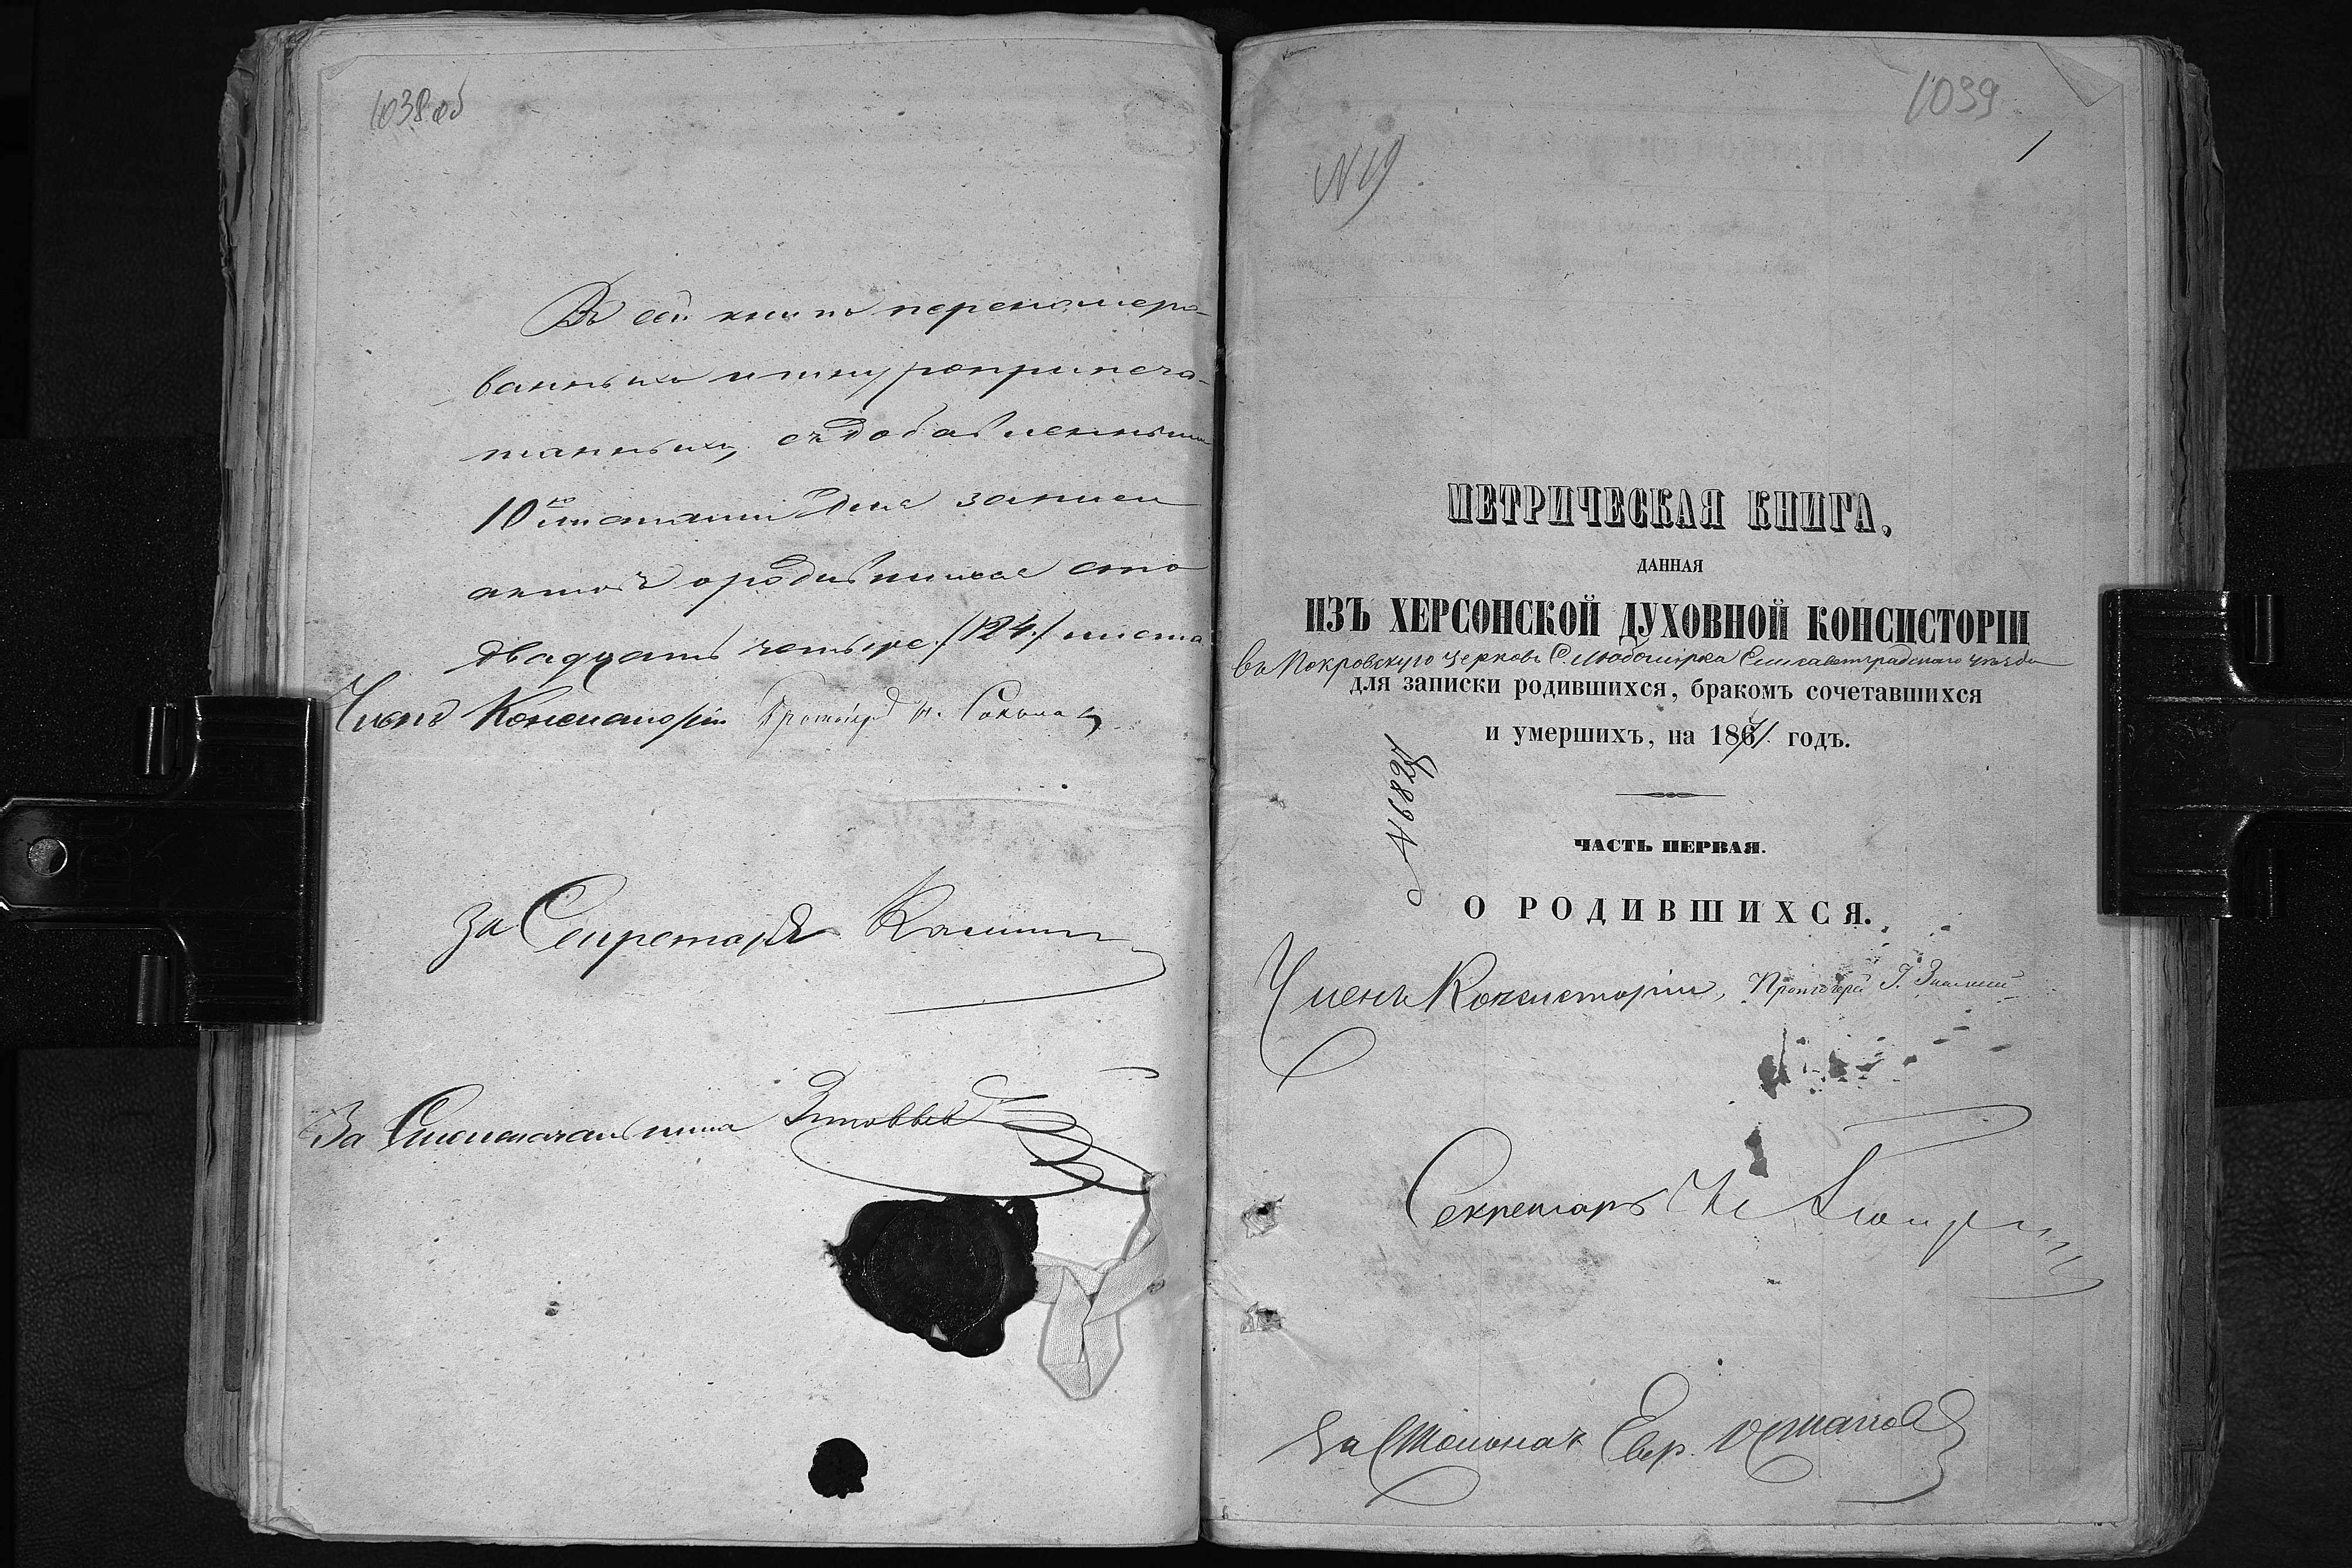 1038 об
Въ сей книгѣ перенумеро-
ванныхъ и шнуроприпеча-
танныхъ, съ добавленными
10ю листами для записи
актовъ о родившихся сто
двадцать четыре /124/ листа
Членъ Консисторіи Протоіер. Н. Соколовъ
За Секретаря
За Столоначальника
1039
1
N 19
МЕТРИЧЕСКАЯ КНИГА,
ДАННАЯ
ИЗЪ ХЕРСОНСКОЙ ДУХОВНОЙ КОНСИСТОРІИ
въ Покровскую церковь С. Любомірка Елисаветградскаго уѣзда
для записки родившихся, бракомъ сочетавшихся
и умершихъ, на 1871 годъ.
ЧАСТЬ ПЕРВАЯ.
О РОДИВШИХСЯ.
Членъ Консисторіи, Протоіерей
Секретарь
За Столонач.